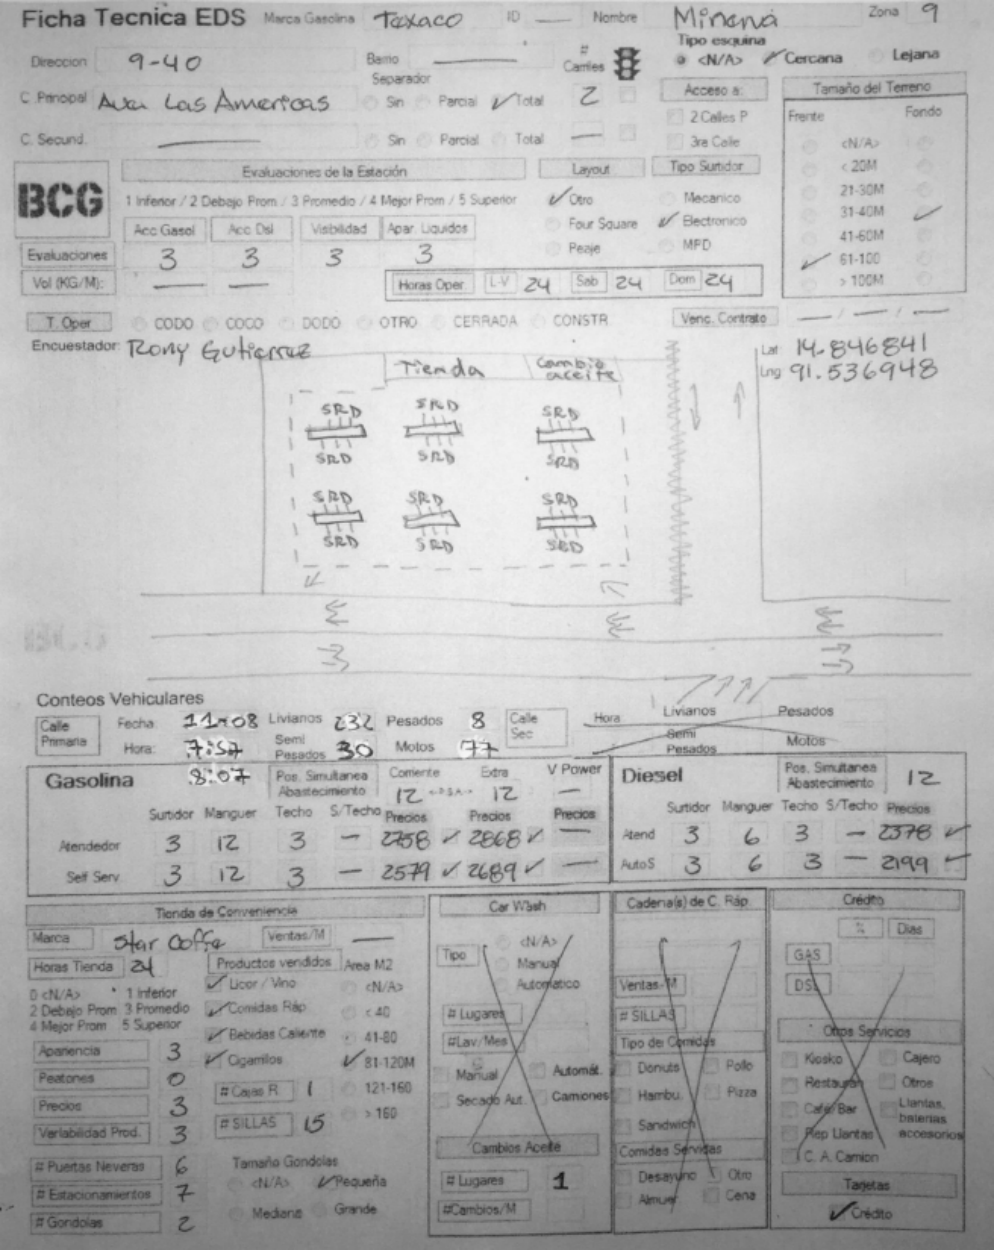 Ficha Tecnica EDS Marca Gasolina Texaco ID — Nombre Minerva Zona 9
Direccion 9-40 Barrio — # Carriles Tipo esquina <N/A> Cercana Lejana
Separador
C. Principal Avda Las Americas Sin Parcial Total 2 Acceso a: Tamaño del Terreno
2 Calles P Frente Fondo
C. Secund. — Sin Parcial Total — 3ra Calle <N/A>
BCG Evaluaciones de la Estación Layout Tipo Surtidor < 20M
1 Inferior / 2 Debajo Prom / 3 Promedio / 4 Mejor Prom / 5 Superior Otro Mecanico 21-30M
31-40M
Acc Gasol Acc Dsl Visibilidad Apar. Liquidos Four Square Electronico 41-60M
Evaluaciones 3 3 3 3 Peaje MPD 61-100
Vol (KG/M): — — Horas Oper L-V 24 Sab 24 Dom 24 > 100M
T. Oper CODO COCO DODO OTRO CERRADA CONSTR Venc. Contrato — / — / —
Encuestador: Rony Gutierrez Lat 14.846841
Lng 91.536948
Tienda Cambio aceite
SRD SRD SRD
SRD SRD SRD
SRD SRD SRD
SRD SRD SRD
BCG
Conteos Vehiculares
Calle Primaria Fecha 11-08 Livianos 232 Pesados 8 Calle Sec Hora Livianos Pesados
Hora: 7:57 Semi Pesados 30 Motos 77 Semi Pesados Motos
8:07
Gasolina Pos. Simultanea Abastecimiento Corriente 12 Extra 12 V Power — Diesel Pos. Simultanea Abastecimiento 12
Surtidor Manguer Techo S/Techo Precios Precios Precios Surtidor Manguer Techo S/Techo Precios
Atendedor 3 12 3 — 2758 2868 — Atend 3 6 3 — 2378
Self Serv. 3 12 3 — 2579 2689 — Auto S 3 6 3 — 2199
Tienda de Conveniencia
Marca Star Coffe Ventas/M —
Horas Tienda 24 Productos vendidos Area M2
0 <N/A> 1 Inferior Licor / Vino <N/A>
2 Debajo Prom 3 Promedio Comidas Ráp < 40
4 Mejor Prom 5 Superior Bebidas Caliente 41-80
Apariencia 3 Cigarrilos 81-120M
Peatones 0 # Cajas R. 1 121-160
Precios 3 # SILLAS 15 > 160
Variabilidad Prod. 3
# Puertas Neveras 6 Tamaño Gondolas
# Estacionamientos 7 <N/A> Pequeña
# Gondolas 2 Mediana Grande
Car Wash
Tipo <N/A>
Manual
Automatico
# Lugares
#Lav/Mes
Manual Automát.
Secado Aut. Camiones
Cambios Aceite
# Lugares 1
#Cambios/M
Cadena(s) de C. Ráp
Ventas-M
# SILLAS
Tipo de Comidas
Donuts Pollo
Hambu. Pizza
Sandwich
Comidas Servidas
Desayuno Otro
Almuer Cena
Crédito
% Dias
GAS
DSL
Otros Servicios
Kiosko Cajero
Restauran Otros
Café/Bar Llantas, baterias, accesorios
Rep Llantas
C. A. Camion
Tarjetas
Crédito